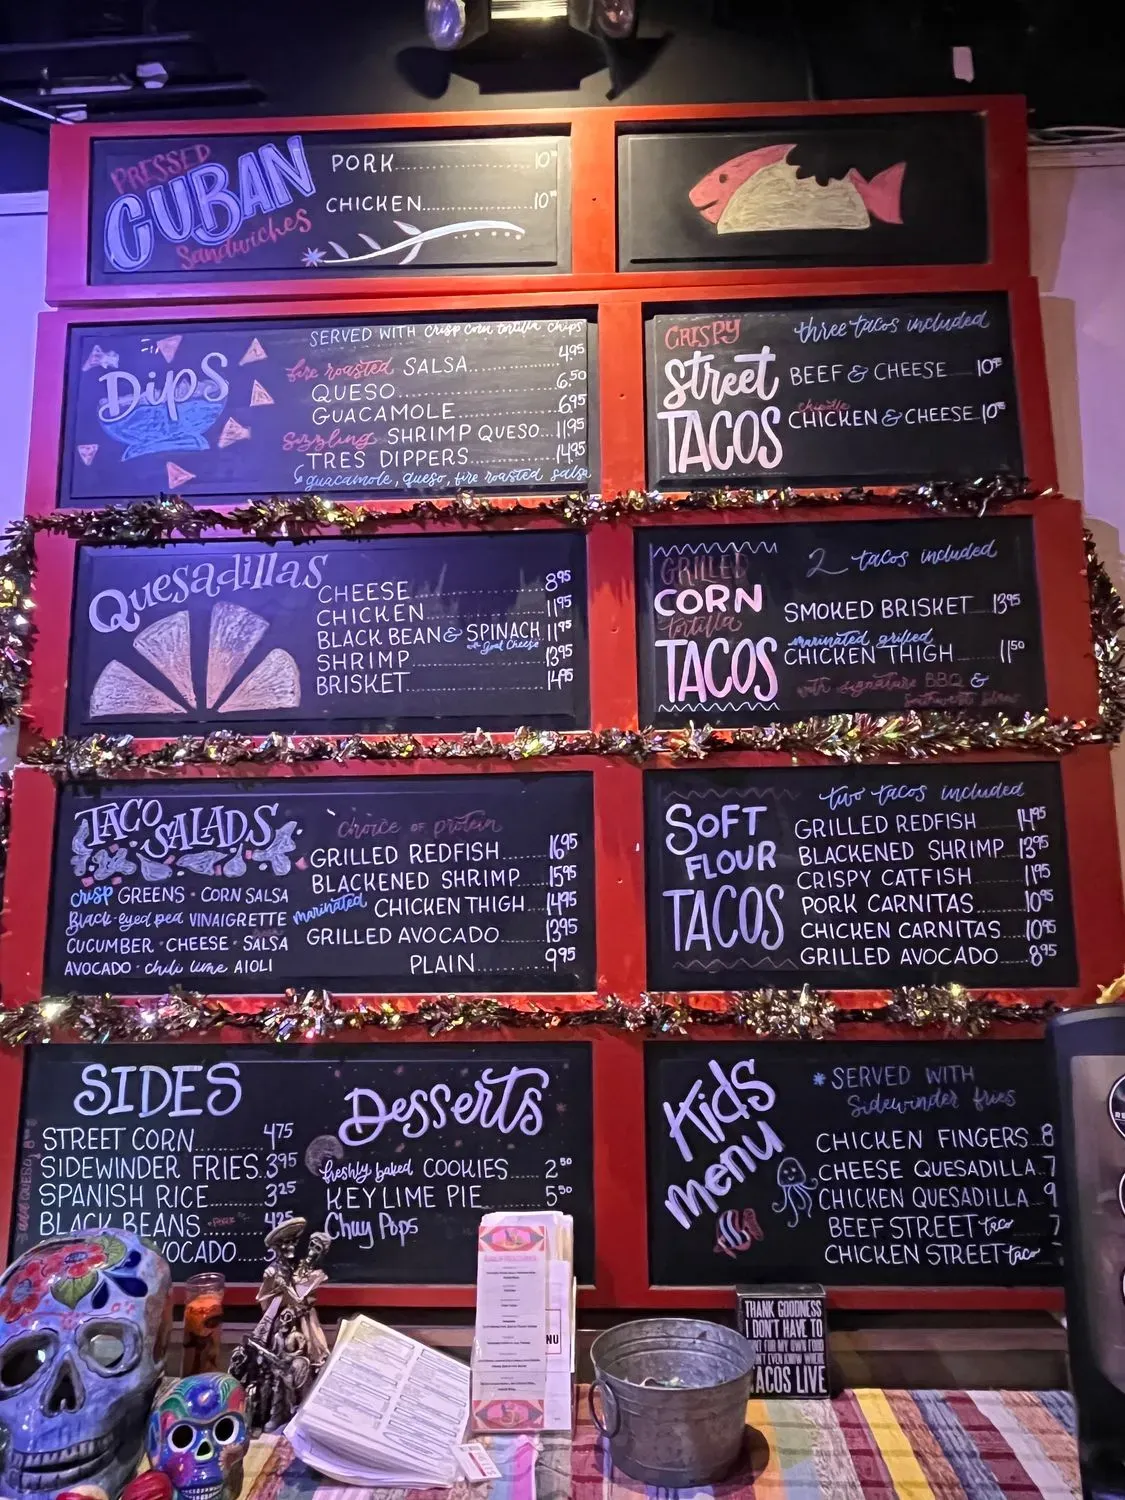 PRESSED
CUBAN
Sandwiches
PORK
CHICKEN
DIPS
SERVED WITH crisp corn tortilla chips
fire roasted SALSA 4.95
QUESO 6.50
GUACAMOLE 6.95
Sizzling SHRIMP QUESO 11.95
TRES DIPPERS 14.95
guacamole, queso, fire roasted salsa
CRISPY
Street
TACOS
three tacos included
BEEF & CHEESE
chipotle
CHICKEN & CHEESE
Quesadillas
CHEESE 8.95
CHICKEN 11.95
BLACK BEAN & SPINACH 11.95
with Goat Cheese
SHRIMP 13.95
BRISKET 14.95
GRILLED
CORN
tortilla
TACOS
2 tacos included
SMOKED BRISKET 13.95
marinated grilled
CHICKEN THIGH 11.50
with signature BBQ &
TACO SALADS
crisp GREENS · CORN SALSA
Black-eyed pea VINAIGRETTE
CUCUMBER · CHEESE · SALSA
AVOCADO · chili lime AIOLI
choice of protein
GRILLED REDFISH 16.95
BLACKENED SHRIMP 15.95
marinated CHICKEN THIGH 14.95
GRILLED AVOCADO 13.95
PLAIN 9.95
SOFT
FLOUR
TACOS
two tacos included
GRILLED REDFISH 14.95
BLACKENED SHRIMP 13.95
CRISPY CATFISH 11.95
PORK CARNITAS 10.95
CHICKEN CARNITAS 10.95
GRILLED AVOCADO 8.95
SIDES
STREET CORN 4.75
SIDEWINDER FRIES 3.95
SPANISH RICE 3.25
BLACK BEANS
VOCADO
Desserts
freshly baked COOKIES 2.50
KEY LIME PIE 5.50
Chuy Pops
Kids
menu
*SERVED WITH
Sidewinder fries
CHICKEN FINGERS 8
CHEESE QUESADILLA 7
CHICKEN QUESADILLA 9
BEEF STREET taco 7
CHICKEN STREET taco
NU
THANK GOODNESS
I DON'T HAVE TO
FOR MY OWN FOOD
EVEN KNOW WHERE
TACOS LIVE